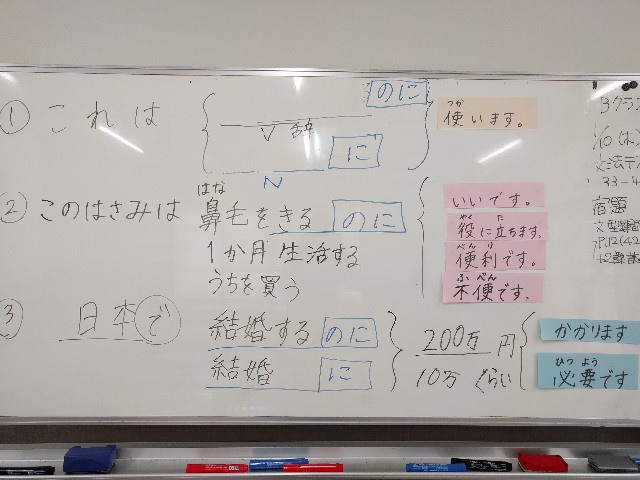 のに
① これは
V 辞
使います。
つか
に
N
② このはさみは
はな
鼻毛をきる のに
いいです。
役に立ちます。
やく た
1か月 生活する
便利です。
べん り
うちを買う
不便です。
ふ べん
③ 日本で
結婚する のに
200万 円
かかります
結婚 に
10万 ぐらい
必要です
ひつ よう
宿題